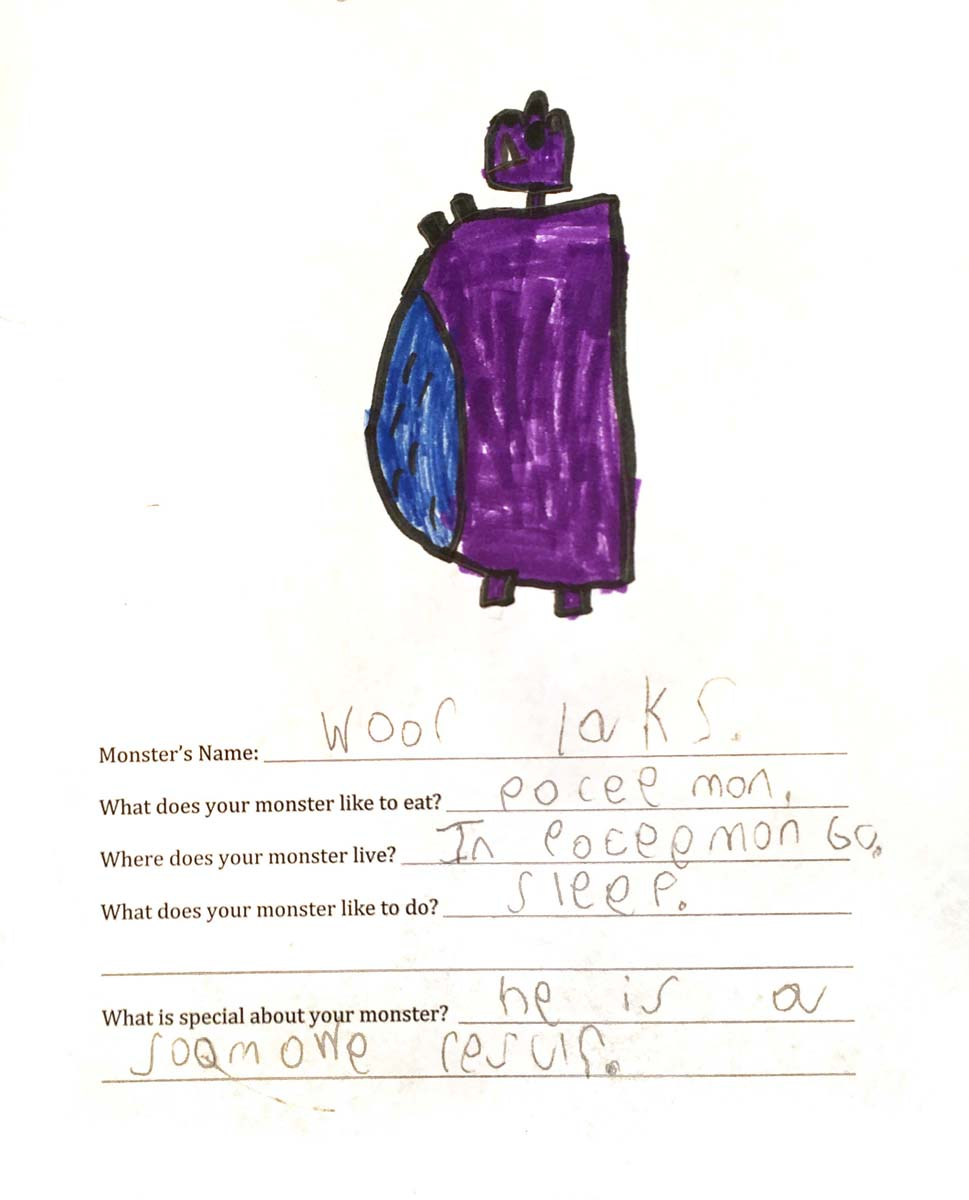 Monster's Name: woor laks.
What does your monster like to eat? poceemon.
Where does your monster live? In poceemon Go.
What does your monster like to do? sleep.
What is special about your monster? he is a